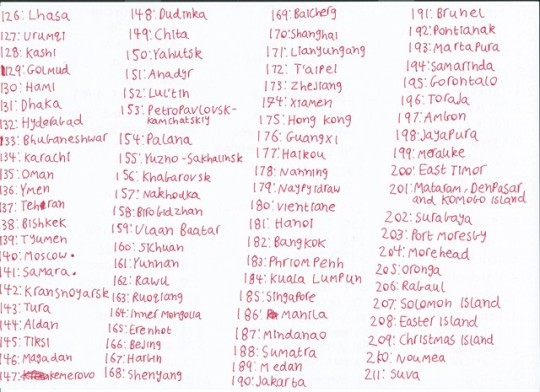 126: Lhasa
127: Urumqi
128: Kashi
129: Golmud
130: Hami
131: Dhaka
132: Hyderabad
133: Bhubaneshwar
134: Karachi
135: Oman
136: Ymen
137: Tehran
138: Bishkek
139: Tyumen
140: Moscow.
141: Samara.
142: Kransnoyarsk
143: Tura
144: Aldan
145: Tiksi
146: Magadan
147: Kemerovo
148: Dudinka
149: Chita
150: Yahutsk
151: Anadyr
152: Lul'tin
153: Petropavlovsk-
Kamchatskiy
154: Palana
155: Yuzno-Sakhalinsk
156: Khabarovsk
157: Nakhodka
158: Birobidzhan
159: Ulaan Baatar
160: Sichuan
161: Yunnan
162: Rawu
163: Ruoqiang
164: Inner Mongolia
165: Erenhot
166: Beijing
167: Harbin
168: Shenyang
169: Baicherg
170: Shanghai
171: Lianyungang
172: T'aipei
173: Zhejiang
174: Xiamen
175: Hong Kong
176: Guangxi
177: Haikou
178: Nanning
179: Naypyidaw
180: Vientiane
181: Hanoi
182: Bangkok
183: Phnom Penh
184: Kuala Lumpun
185: Singapore
186: Manila
187: Mindanao
188: Sumatra
189: Medan
190: Jakarta
191: Brunei
192: Pontianak
193: Martapura
194: Samarinda
195: Gorontalo
196: Toraja
197: Ambon
198: Jayapura
199: Merauke
200: East Timor
201: Mataram, Denpasar,
and Komobo Island
202: Surabaya
203: Port Moresby
204: Morehead
205: Oronga
206: Rabaul
207: Solomon Island
208: Easter Island
209: Christmas Island
210: Noumea
211: Suva